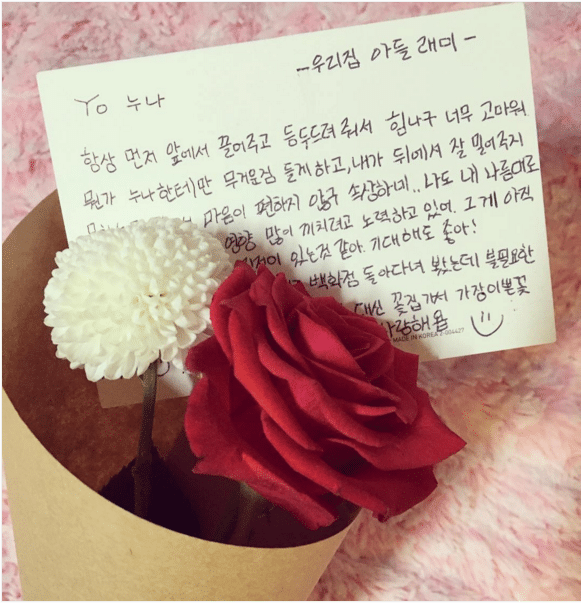 -우리집 아들 래미-
Yo 누나
항상 먼저 앞에서 끌어주고 등두드려 줘서 힘나구 너무 고마워
뭔가 누나한테만 무거운짐 들게하고, 내가 뒤에서 잘 밀어주지
마음이 편하지 않구 속상하네.. 나도 내 나름대로
많이 끼치려고 노력하고 있어. 그게 아직
있는것 같아. 기대해도 좋아!
백화점 돌아다녀 봤는데 불필요한
대신 꽃집가서 가장이쁜꽃
사랑해욥
MADE IN KOREA